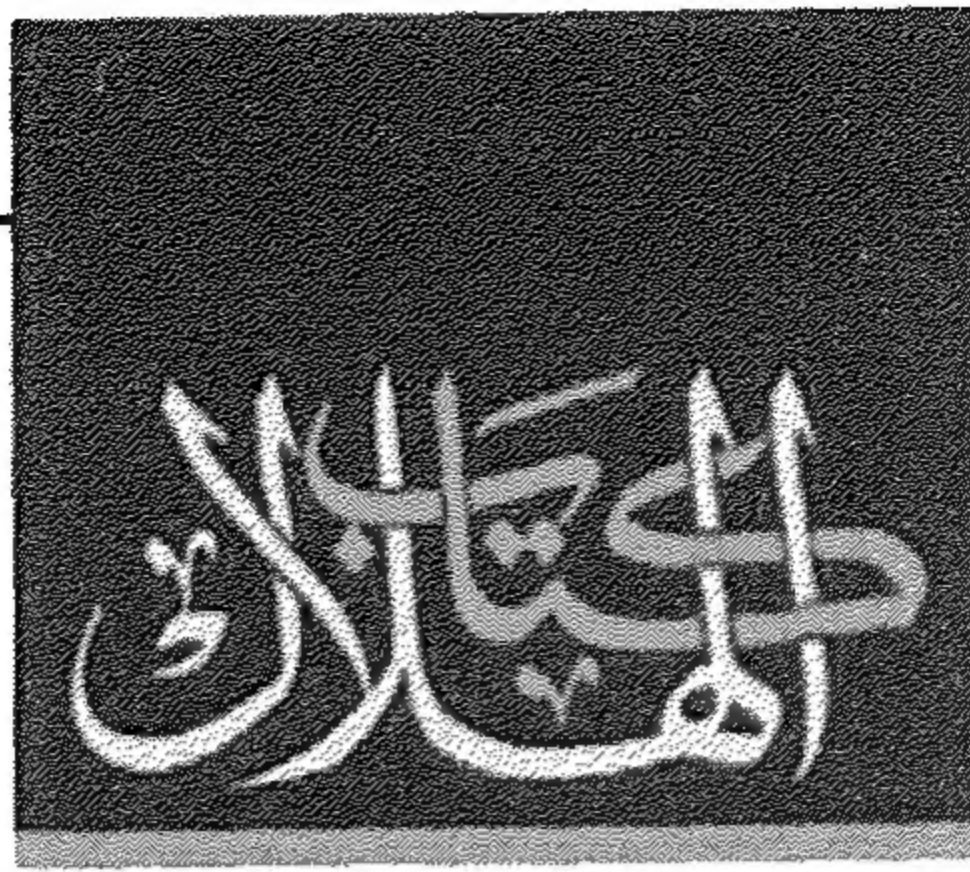 كتاب الهلال